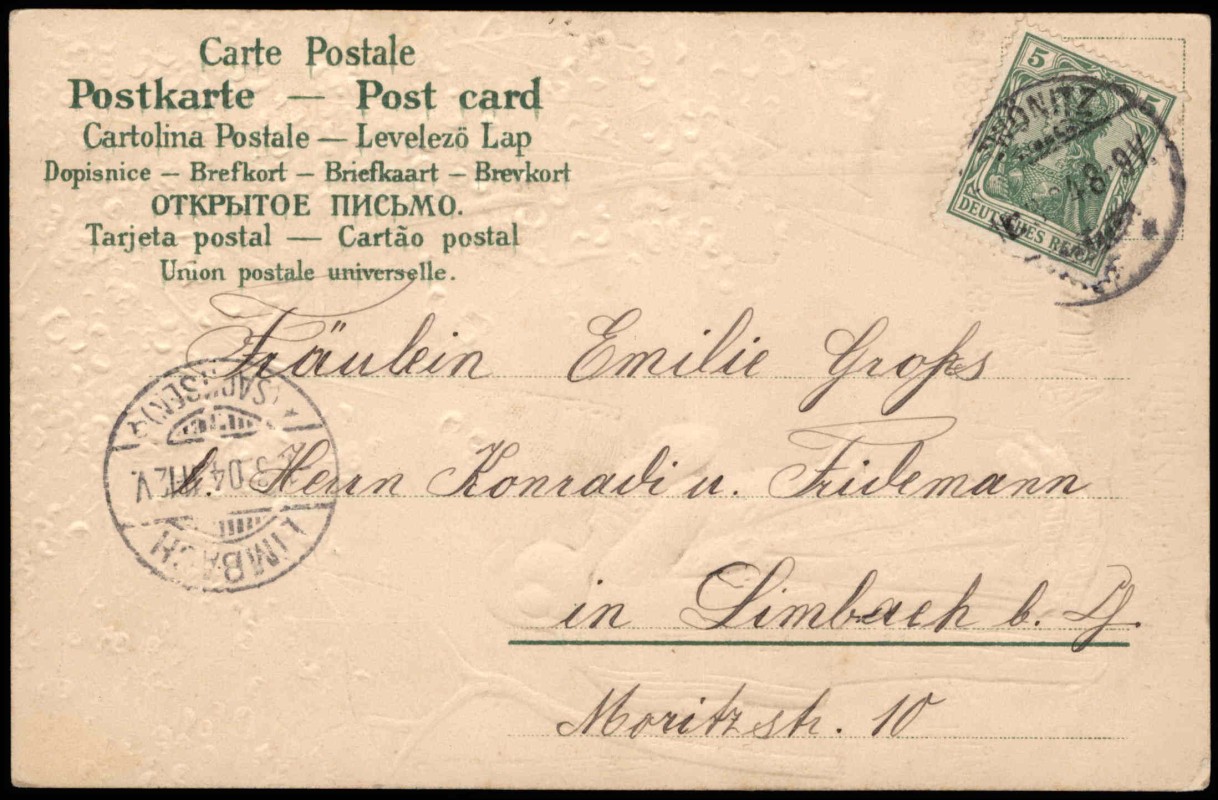 Carte Postale
Postkarte — Post card
Cartolina Postale — Levelezö Lap
Dopisnice – Brefkort – Briefkaart – Brevkort
ОТКРЫТОЕ ПИСЬМО.
Tarjeta postal — Cartão postal
Union postale universelle.
5 5
DEUTSCHES REICH
ZWÖNITZ
4 8-9V.
Fräulein Emilie Groß
b. Herrn Konradi u. Fridemann
in Limbach b. Ch.
Moritzstr. 10
(SACHSEN)
3 04 11-12V.
LIMBACH